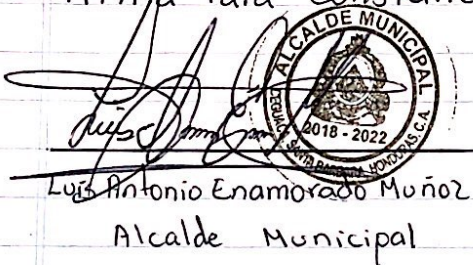 Firma para Constancia
ALCALDE MUNICIPAL
2018 - 2022
SANTA BARBARA, HONDURAS, C.A.
Luis Antonio Enamorado Muñoz
Alcalde Municipal